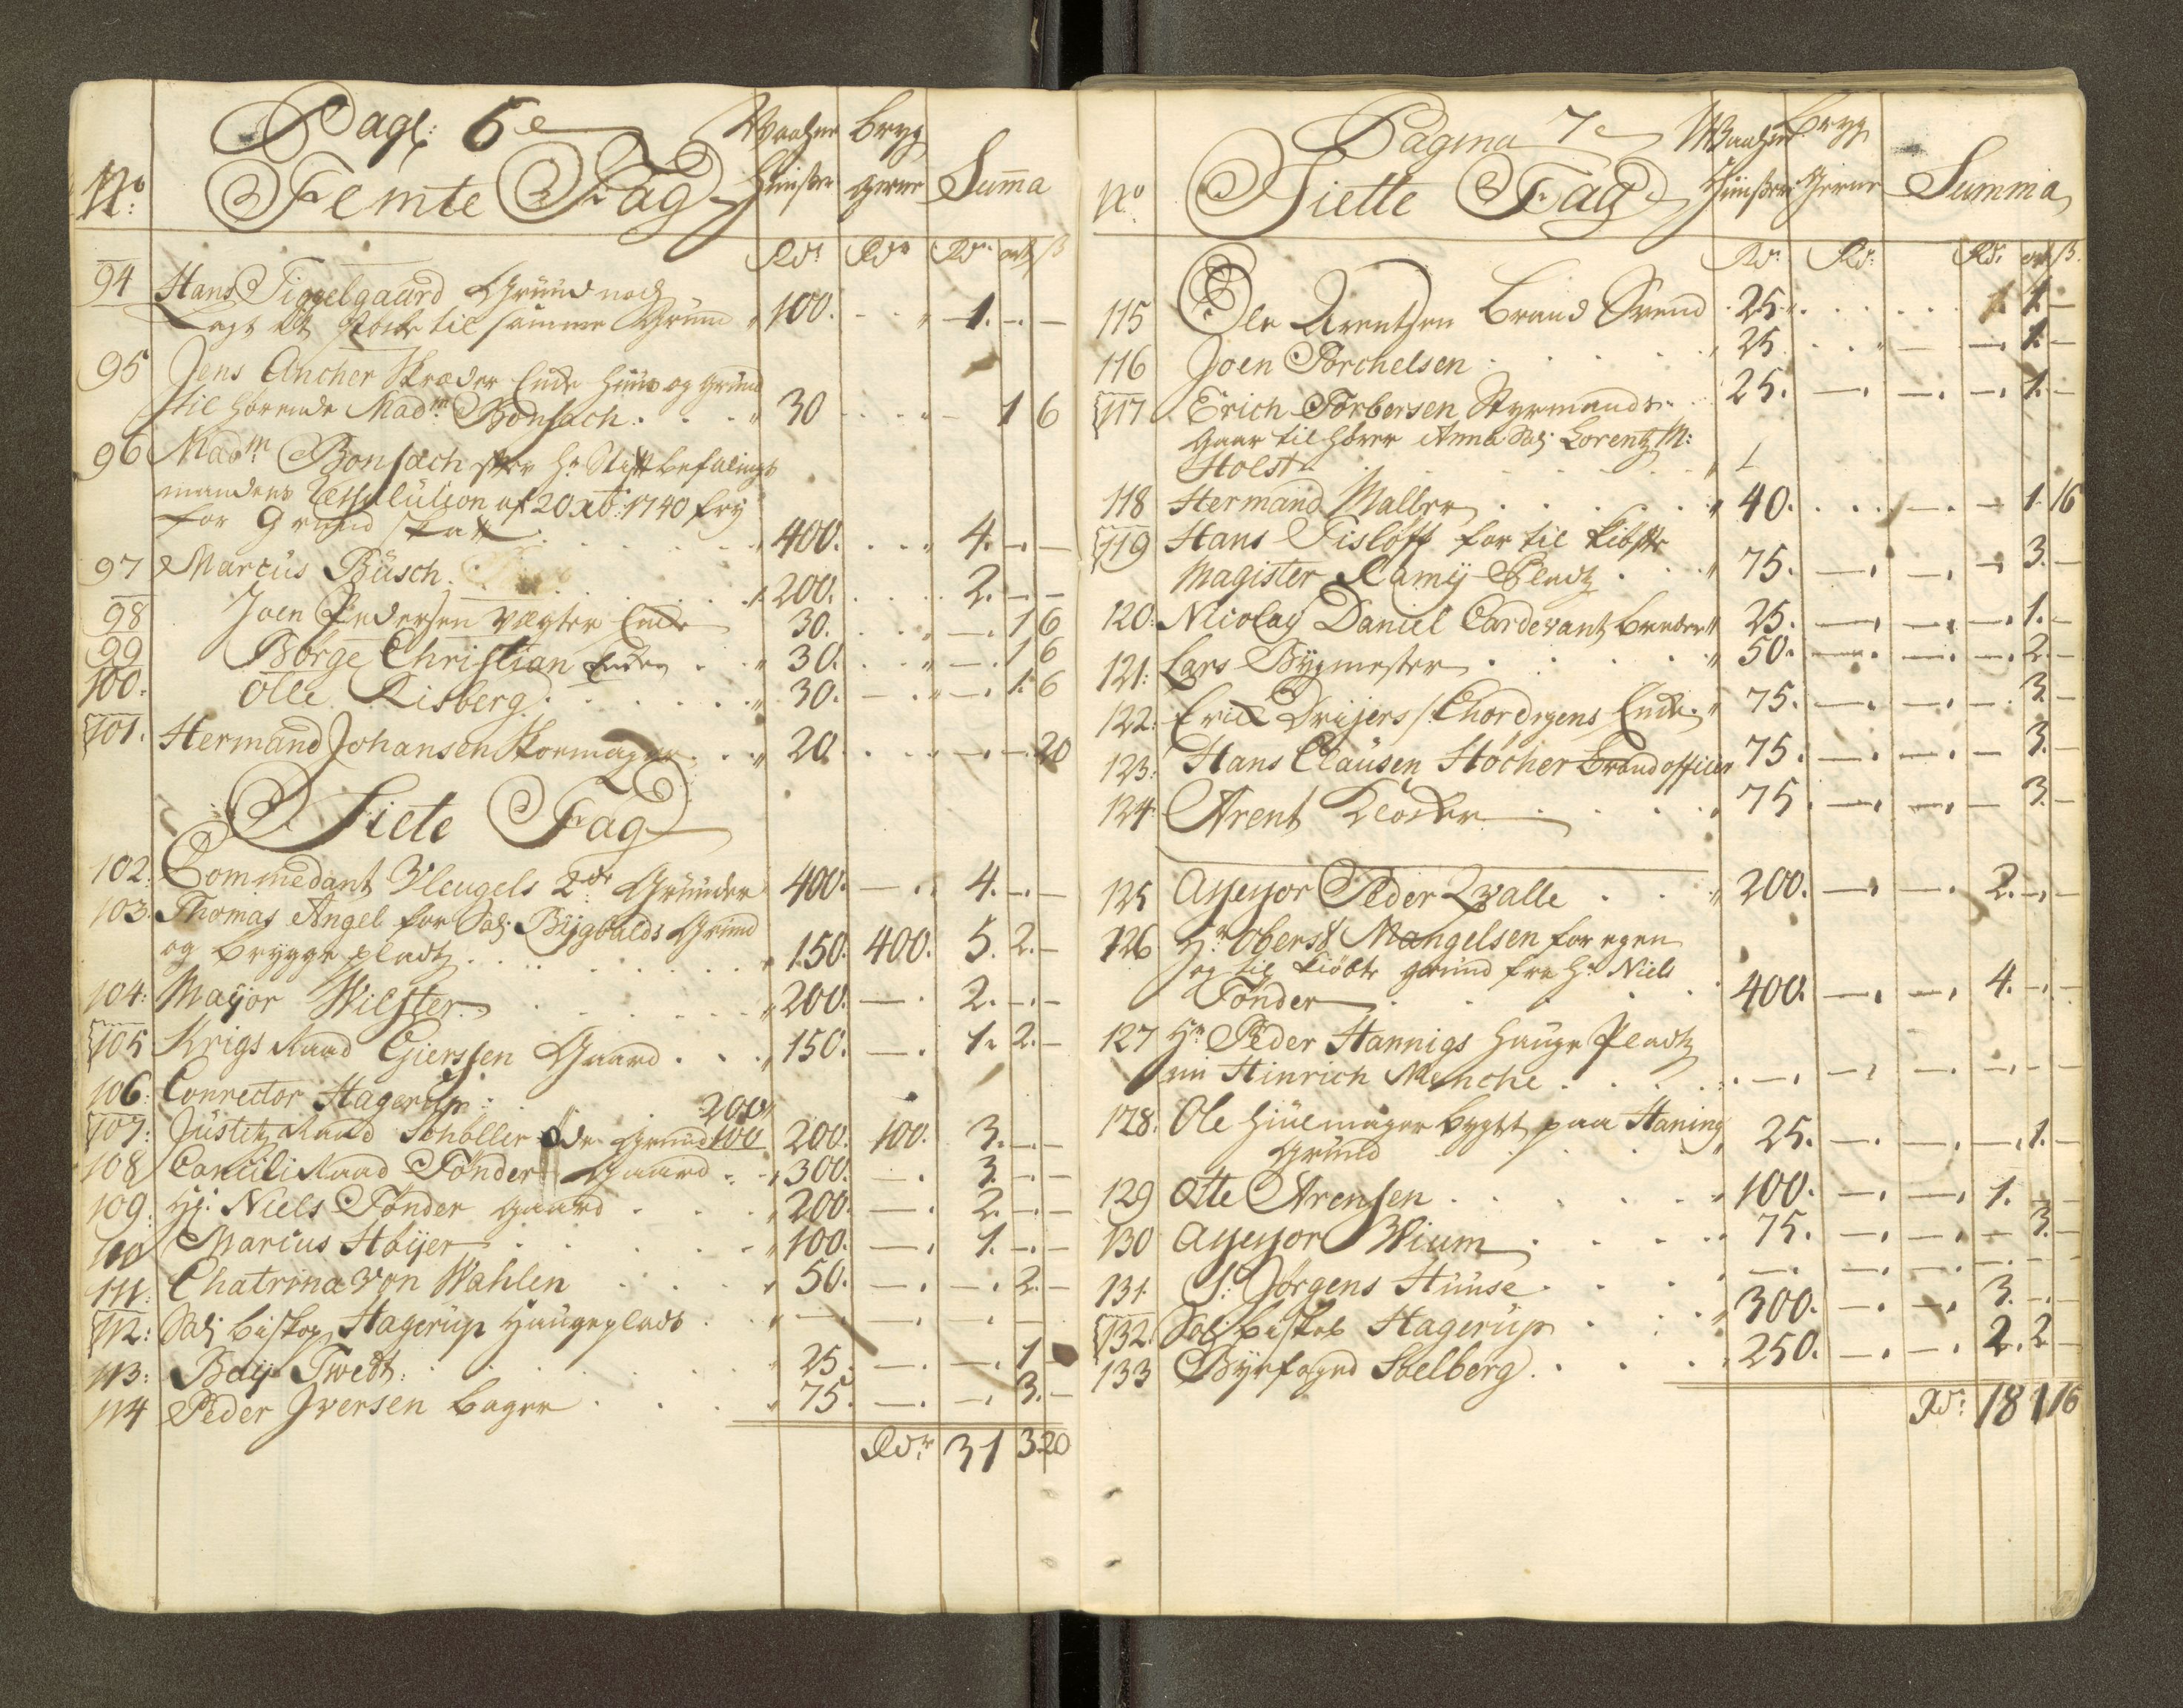 Pag: 6
No: Femte Fag Waahnehuusene Bryggerne Summa
Rdr Rdr Rdr ort ß
94 Hans Tiggelgaard Grund nock
Lagt et støcke til samme Grund " 100. - - " 1. - -
95 Jens Ancher Skræder Ende Huus og grund
til hørende Mad.m Bonsach . . . " 30 . . . - 1 6
96 Mad.m Bonsach efter Hr Stiftbefalings
mandens Resolution af 20 xb: 1740 fry
for Grund skatt . . . . " 400. . . . 4. - -
97 Marcus Büsch . . . . . " 200. . . . 2. - -
98 Joen Pedersen Vægter Enke 30. . . " - 1 6
99 Børge Christian Enken . . " 30. . . " - 1 6
100. Olle Risberg . . . . . " 30. - . " - 1. 6
101. Hermand Johansen Skomager . . " 20. . . . - - 20
Siete Fag
102: Commedant Vleugels 2de Grunder 400. - . 4. - -
103. Thomas Angel for Sal: Bygbalds Grund
og brygge pladtz . . . . . " 150. 400. 5. 2. -
104: Mayor Wilster . . . . . " 200. - . 2. - -
105 Krigs Raad Gierssen Gaard . . " 150. - . 1. 2. -
106: Conrector Hagerup: . . . 200
107: Justitz Raad Schøller 2de Grund 100 200. 100. 3. - -
108 Cancili Raad Tønder Gaard . . " 300. - . 3. - -
109: Hr: Niels Tønder gaard . . . " 200. - . 2. - -
110 Marcus Høyer . . . . . " 100. - . 1. - -
111: Chatrina von Wahlen . . . . " 50. - . - . 2. -
112: Sal: biskop Hagerup Haugeplads . . " - . . . . -
113: Bay Twedt: . . . . . " 25. - . - . 1 -
114 Peder Iversen bager . . . . " 75. - . - . 3. -
Rdr 31 3. 20
Pagina 7
No Siette Fag Waahnehuusene Bryggerne Summa
Rdr Rdr Rdr ort ß.
115 Ole Arentsen Brand Svend . 25. . . . . . 1. -
116 Joen Torchelsen . . . . . " 25 . . " - - . 1. -
117 Erich Torbersen Styrmands
gaar til hører Anna Sal: Lorentz M:
Holst . . . . . . . 25. - . - . - . 1. -
118 Hermand Maller . . . . . " 40. . . . - . - 1. 16
119 Hans Fisløff for til kiøbte
Magister Ramij Pladtz . . . " 75. - . - . - 3. -
120: Nicolay Daniel Cardevantz bereder " 25. - . - . - . 1. -
121: Lars Bygmester . . . . . " 50. - . - . - . 2. -
122: Erich Drijers /: Chordigens Enke " 75. - . - . - . 3 -
123: Hans Clausen Støcher Brandofficer 75. - . - . - 3. -
124: Arent Klocker . . . . " 75. - . - . - 3. -
125 Assessor Peder Qvalle . . . " 200. - . - . 2. - -
126 Hr Oberst Mangelsen for egen
og til kiøbte grund fra Hr Niels
Tønder . . . . . . 400. - . - . 4. - -
127 Hr Peder Hannigs Hauge Pladtz
nu Hinrich Menche . . . . . - . - . - . - . -
128. Ole Hiulmager bygt paa Haning
Grund . . . . . " 25. - . - . - . 1. -
129 Otte Arensen . . . . . " 100. - . - . 1. - -
130 Assessor Wium . . . . . " 75. - . - . - 3. -
131. St: Jørgens Huuse . . . . . - . - . - . - -
132. Sal: biskob Hagerup . . . . " 300. - . - . 3. - -
133 Byefoged Soelberg . . . . " 250. - . - . 2. 2 -
Rdr: 18 1 16